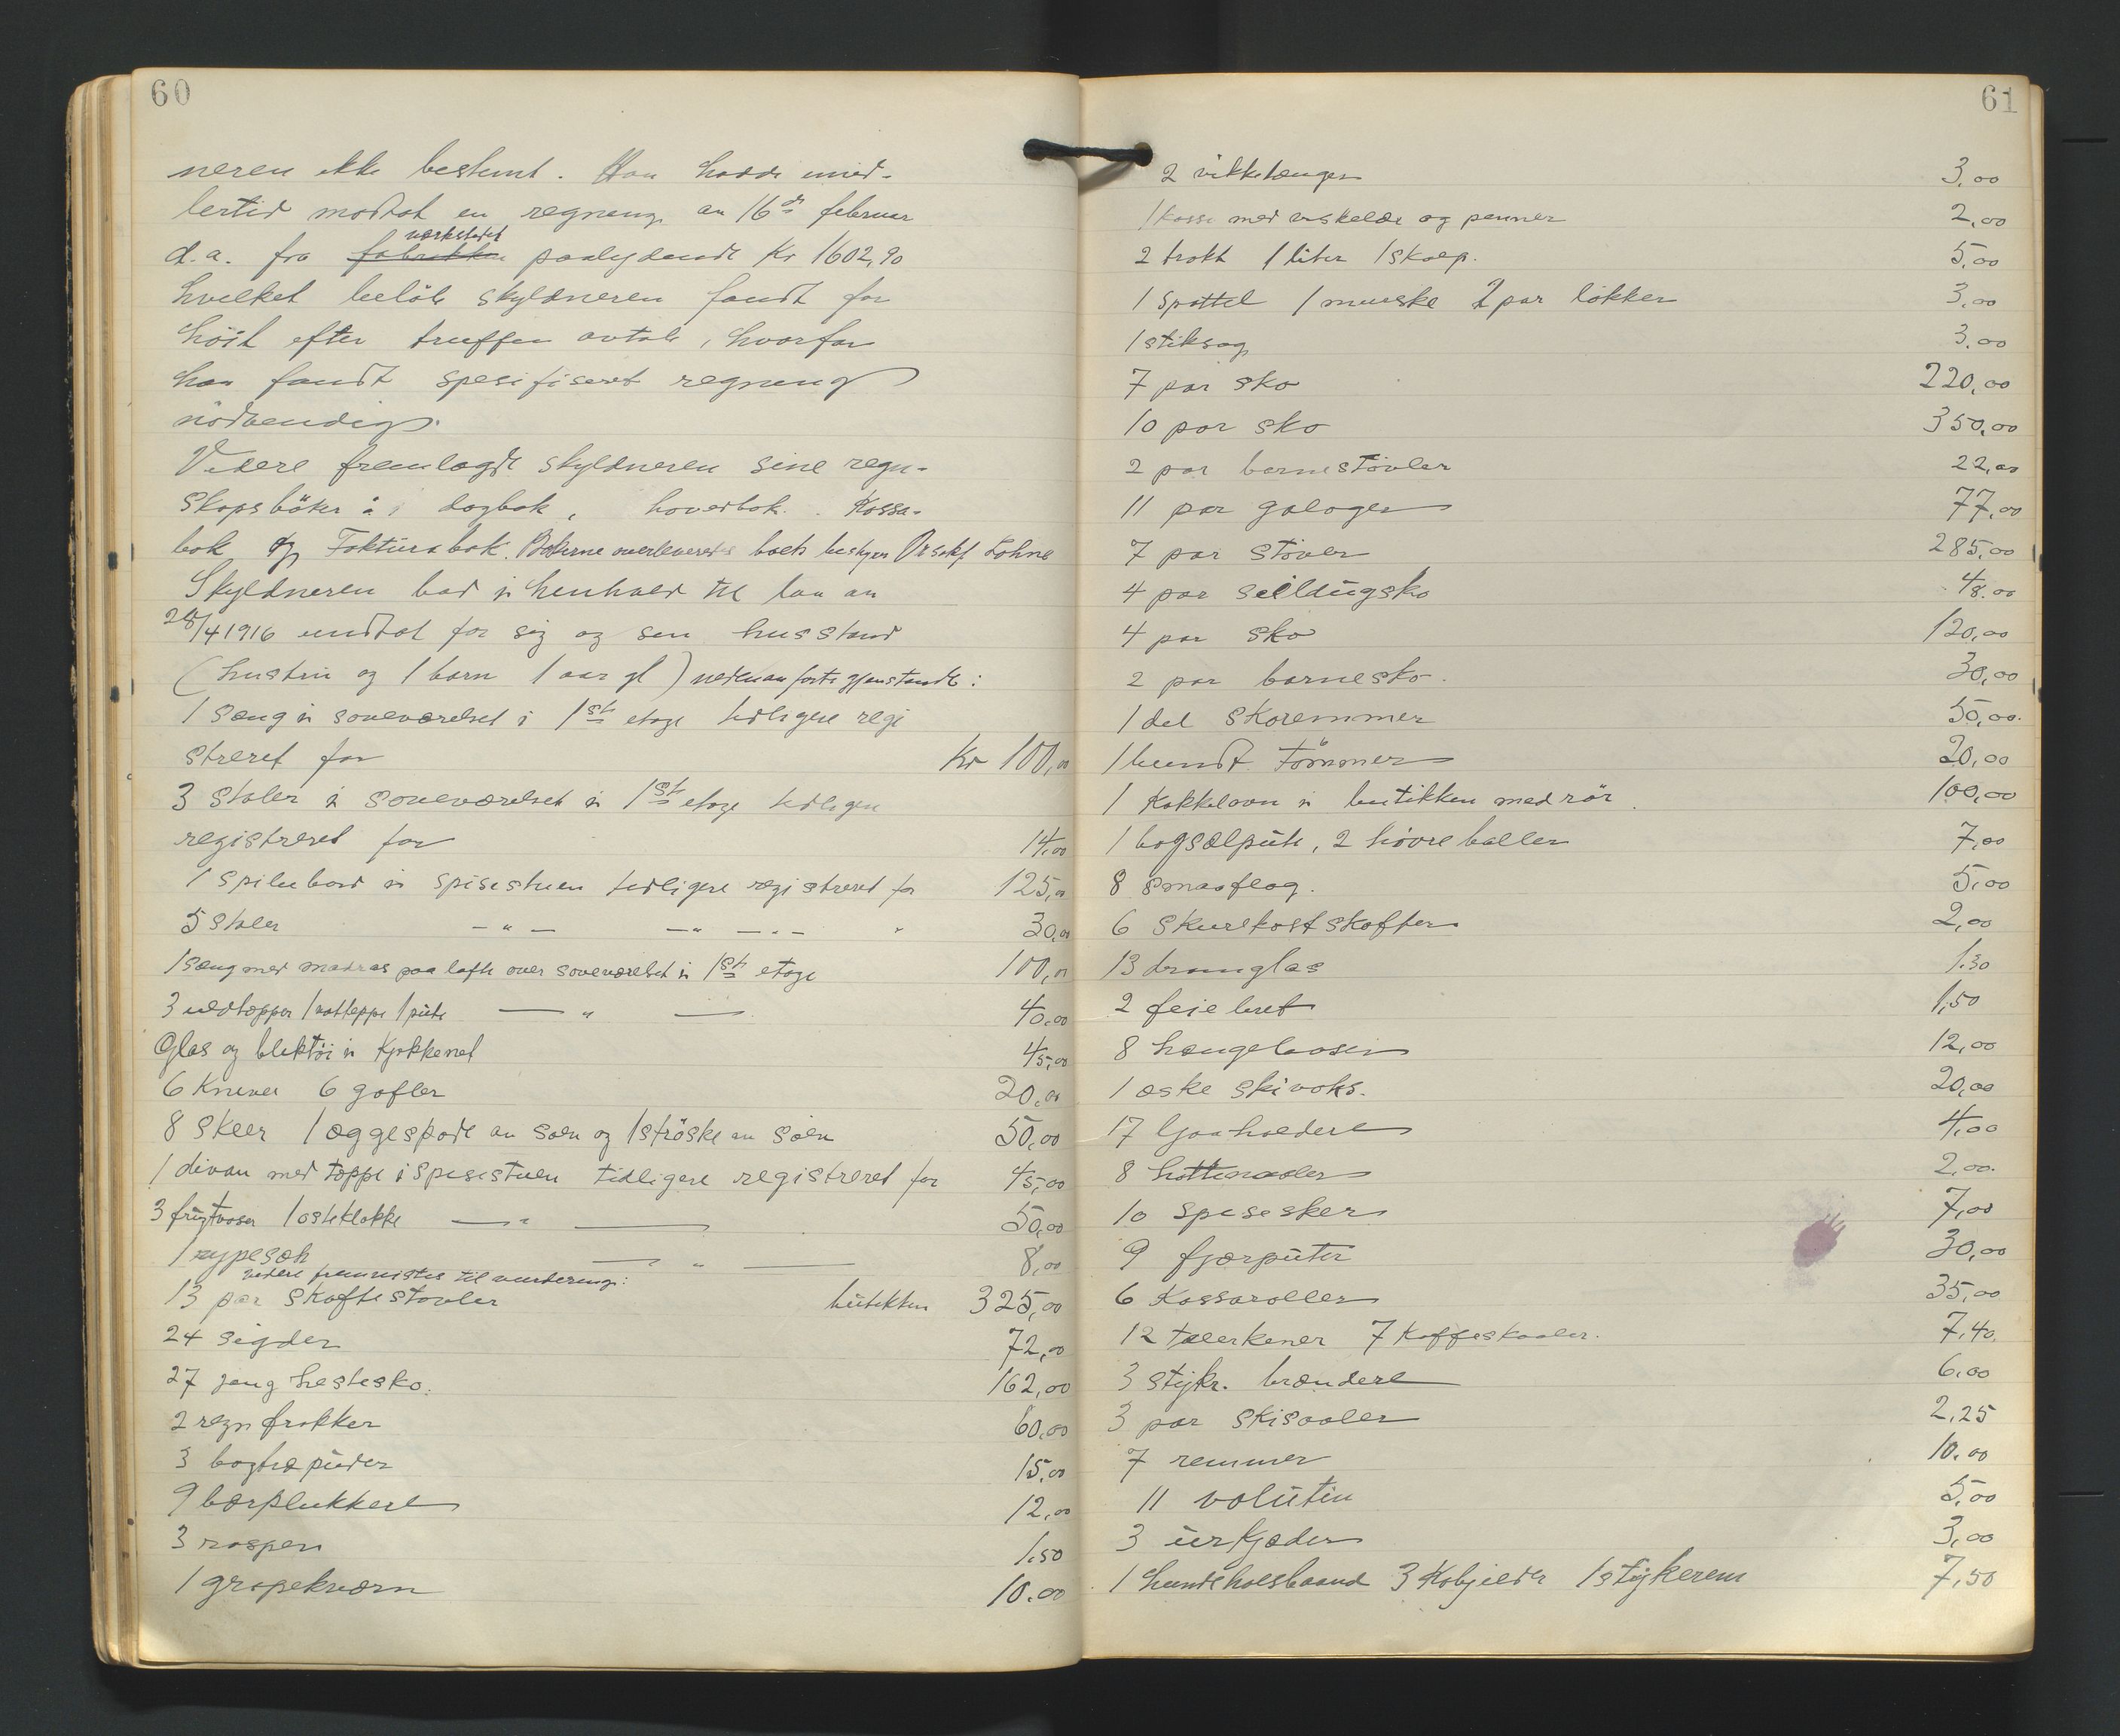 60
neren ikke bestemt. Han hadde imid-
lertid modtat en regning av 16de februar
d.a. fra fabrikken verkstedet paalydende Kr 1602,90
hvilket beløb skyldneren fandt for
höit efter truffen avtale, hvorfor
han fandt spesifiseret regning
nödvendig.
Videre fremlagde skyldneren sine regn-
skapsböker: dagbok, hovedbok. Kassa-
bok og Fakturabok. Bökerne overleveredes boets bestyrer Lohne
Skyldneren bad i henhold til lov av
28/4 1916 undtat for sig og sin husstand
(hustru og 1 barn 1 aar gl) nedenanførte gjenstande:
1 Sæng i soveværelset i 1ste etage tidligere regi
streret for Kr 100,00
3 Stoler i soveværelset i 1ste etage tidligere
registreret for 14,00
1 Spisebord i spisestuen tidligere registreret for 125,00
5 stoler -"- -"- -"- " 30,00
1 sæng med madras paa lofte over soveværelset i 1ste etage 100,00
3 uldtepper 1 vatteppe 1 püte — " — 40,00
Glas og blektöi i Kjøkkenet 45,00
6 Kniver 6 gafler 20,00
8 Skeer 1 æggespade av sølv og 1 ströske av sølv 50,00
1 divan med teppe i spisestuen tidligere registreret for 45,00
3 früktvaser 1 osteklokke — " — 50,00
1 rypesæk — " — 8,00
videre fremvistes til vurdering:
13 par Skaftestøvler bütikken 325,00
24 sigder 72,00
27 gang hestesko. 162,00
2 regnfrakker 60,00
3 bogtræpüder 15,00
9 bærplukkere 12,00
3 rasper 1,50
1 gropekværn 10.00
61
2 vikketænger 3,00
1 kasse med og penner 2,00
2 trakt 1 liter 1 skoep. 5,00
1 Spattel 1 murske 2 par løkker 3,00
1 stiksag 3.00
7 par sko 220,00
10 par sko 350,00
2 par barnestøvler 22,00
11 par galoger 77,00
7 par støvler 285,00
4 par seildügsko 48.00
4 par sko 120,00
2 par barnesko. 30,00
1 del skoremmer 50,00.
1 bundt Tömmer 20,00
1 Kakkelovn i butikken med rör. 100,00
1 bogsælpüte, 2 høvreballer 7,00
8 smaaflag. 5,00
6 Skurekostskafter 2,00
13 dramglas 1.30
2 feiebret 1,50
8 hængelaaser 12,00
1 æske skivoks. 20,00
17 ljaaholdere 4,00
8 hattenaaler 2,00.
10 Spiseskeer 7,00
9 fjærpüter 30,00
6 Kasseroller 35,00
12 tallerkener 7 Kaffeskaaler. 7,40.
3 stykr. brændere 6,00
3 par skisaaler 2,25
7 remmer 10.00
11 volütin 5,00
3 ürkjæder 3,00
1 hundehalsbaand 3 Kobjelder 1 stykerem 7,50